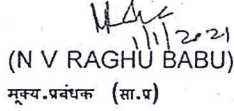 1/1/2021
(N V RAGHU BABU)
मूक्य.प्रवंधक (सा.प्र)